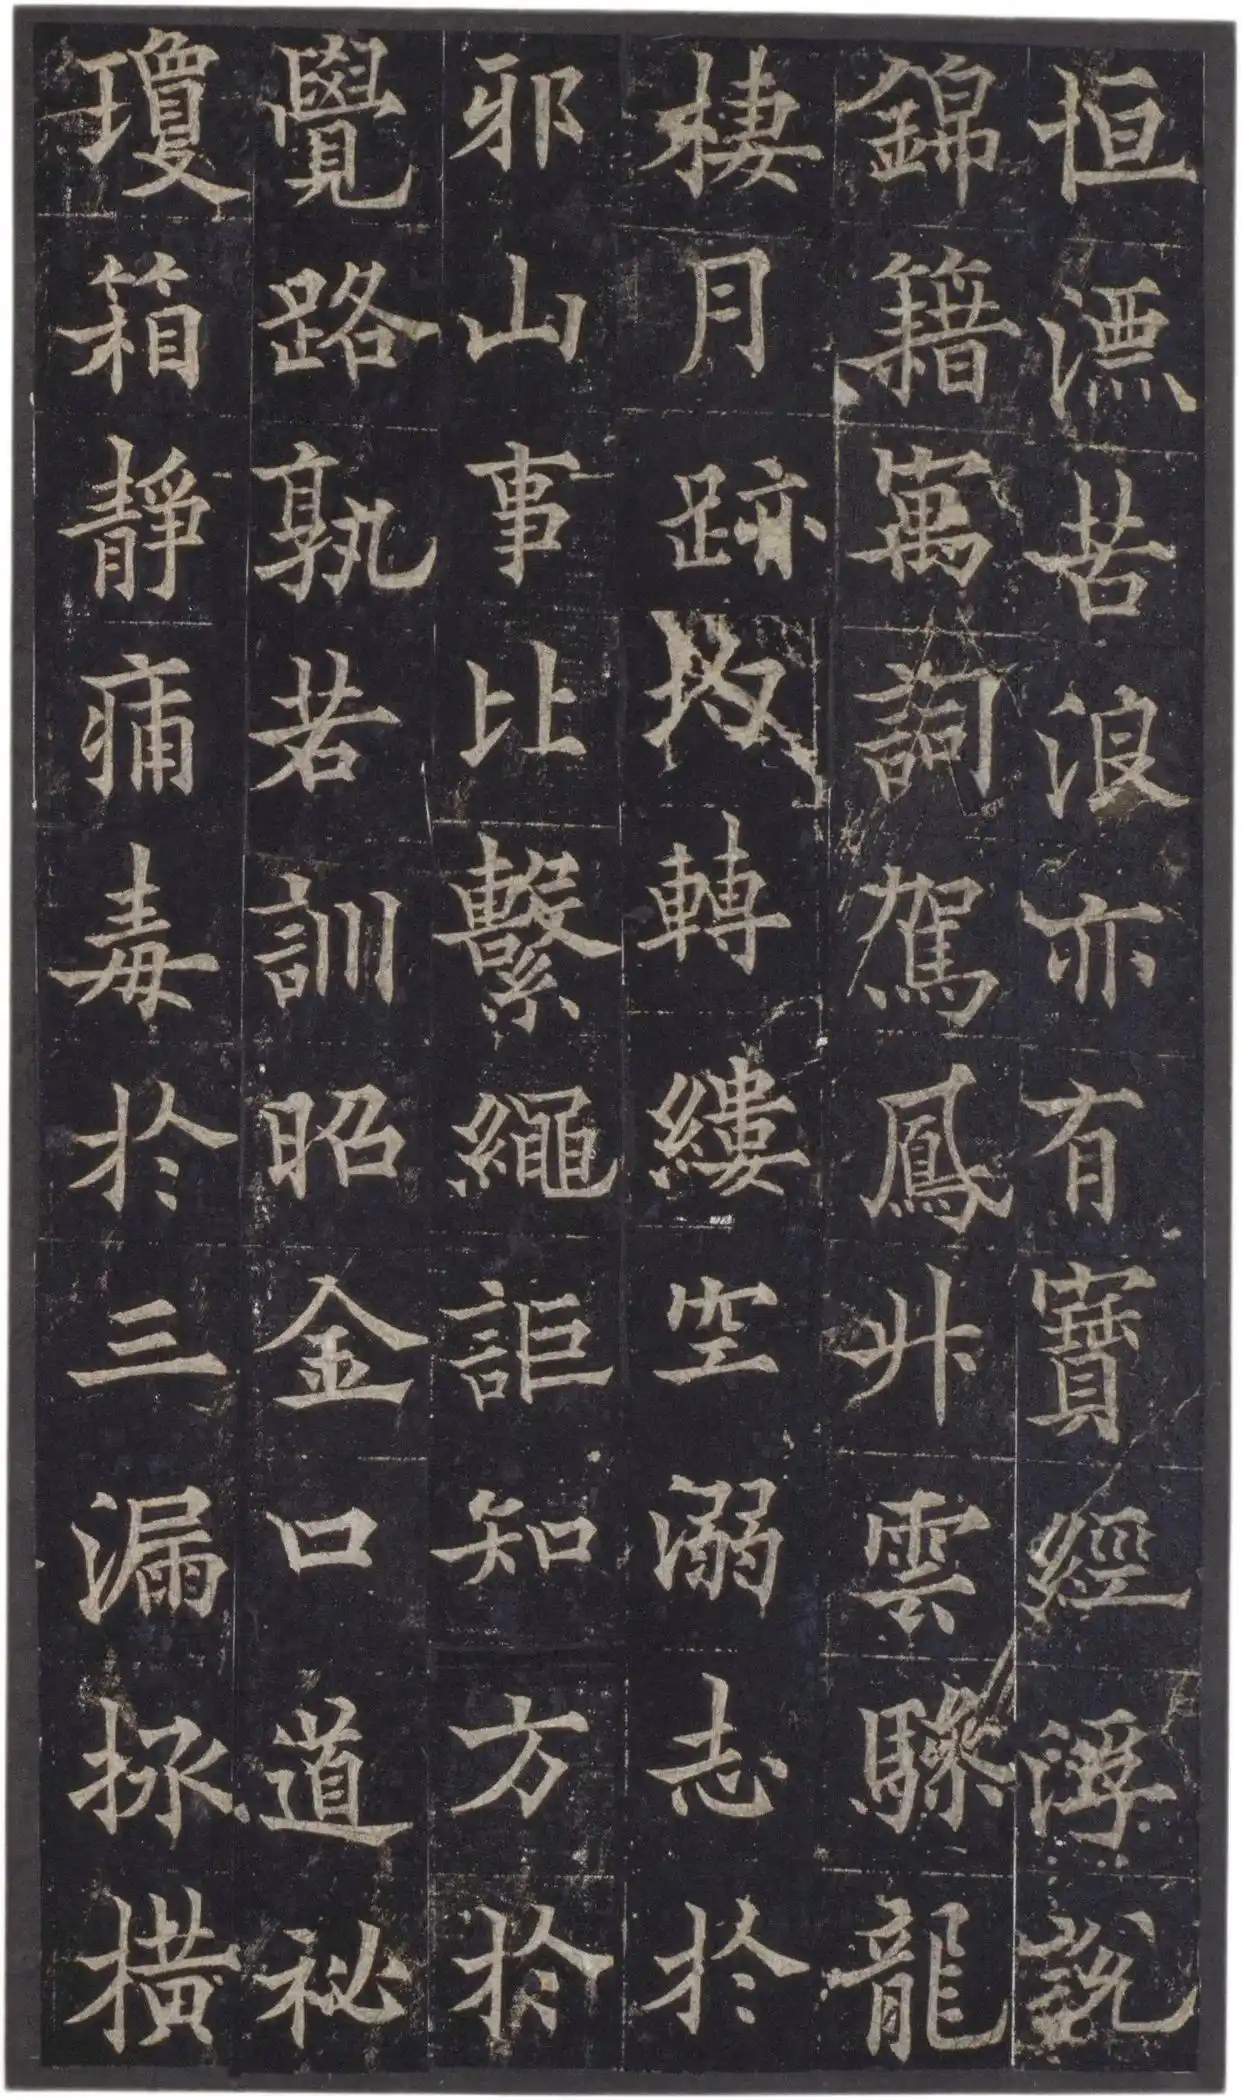 恒漂苦浪亦有寶經浮說
錦籍萬詞駕鳳升雲驂龍
棲月跡轉縷空溺志於
邪山事比繫繩詎知方於
覺路孰若訓昭金口道祕
瓊箱靜痛毒於三漏拯橫